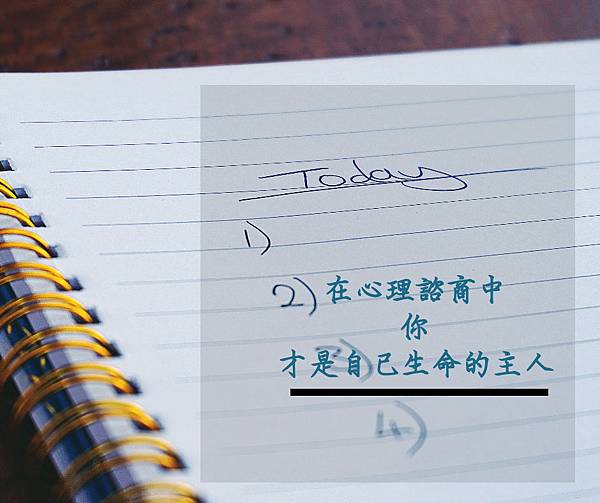 Today
1)
2) 在心理諮商中
你
3) 才是自已生命的主人
4)